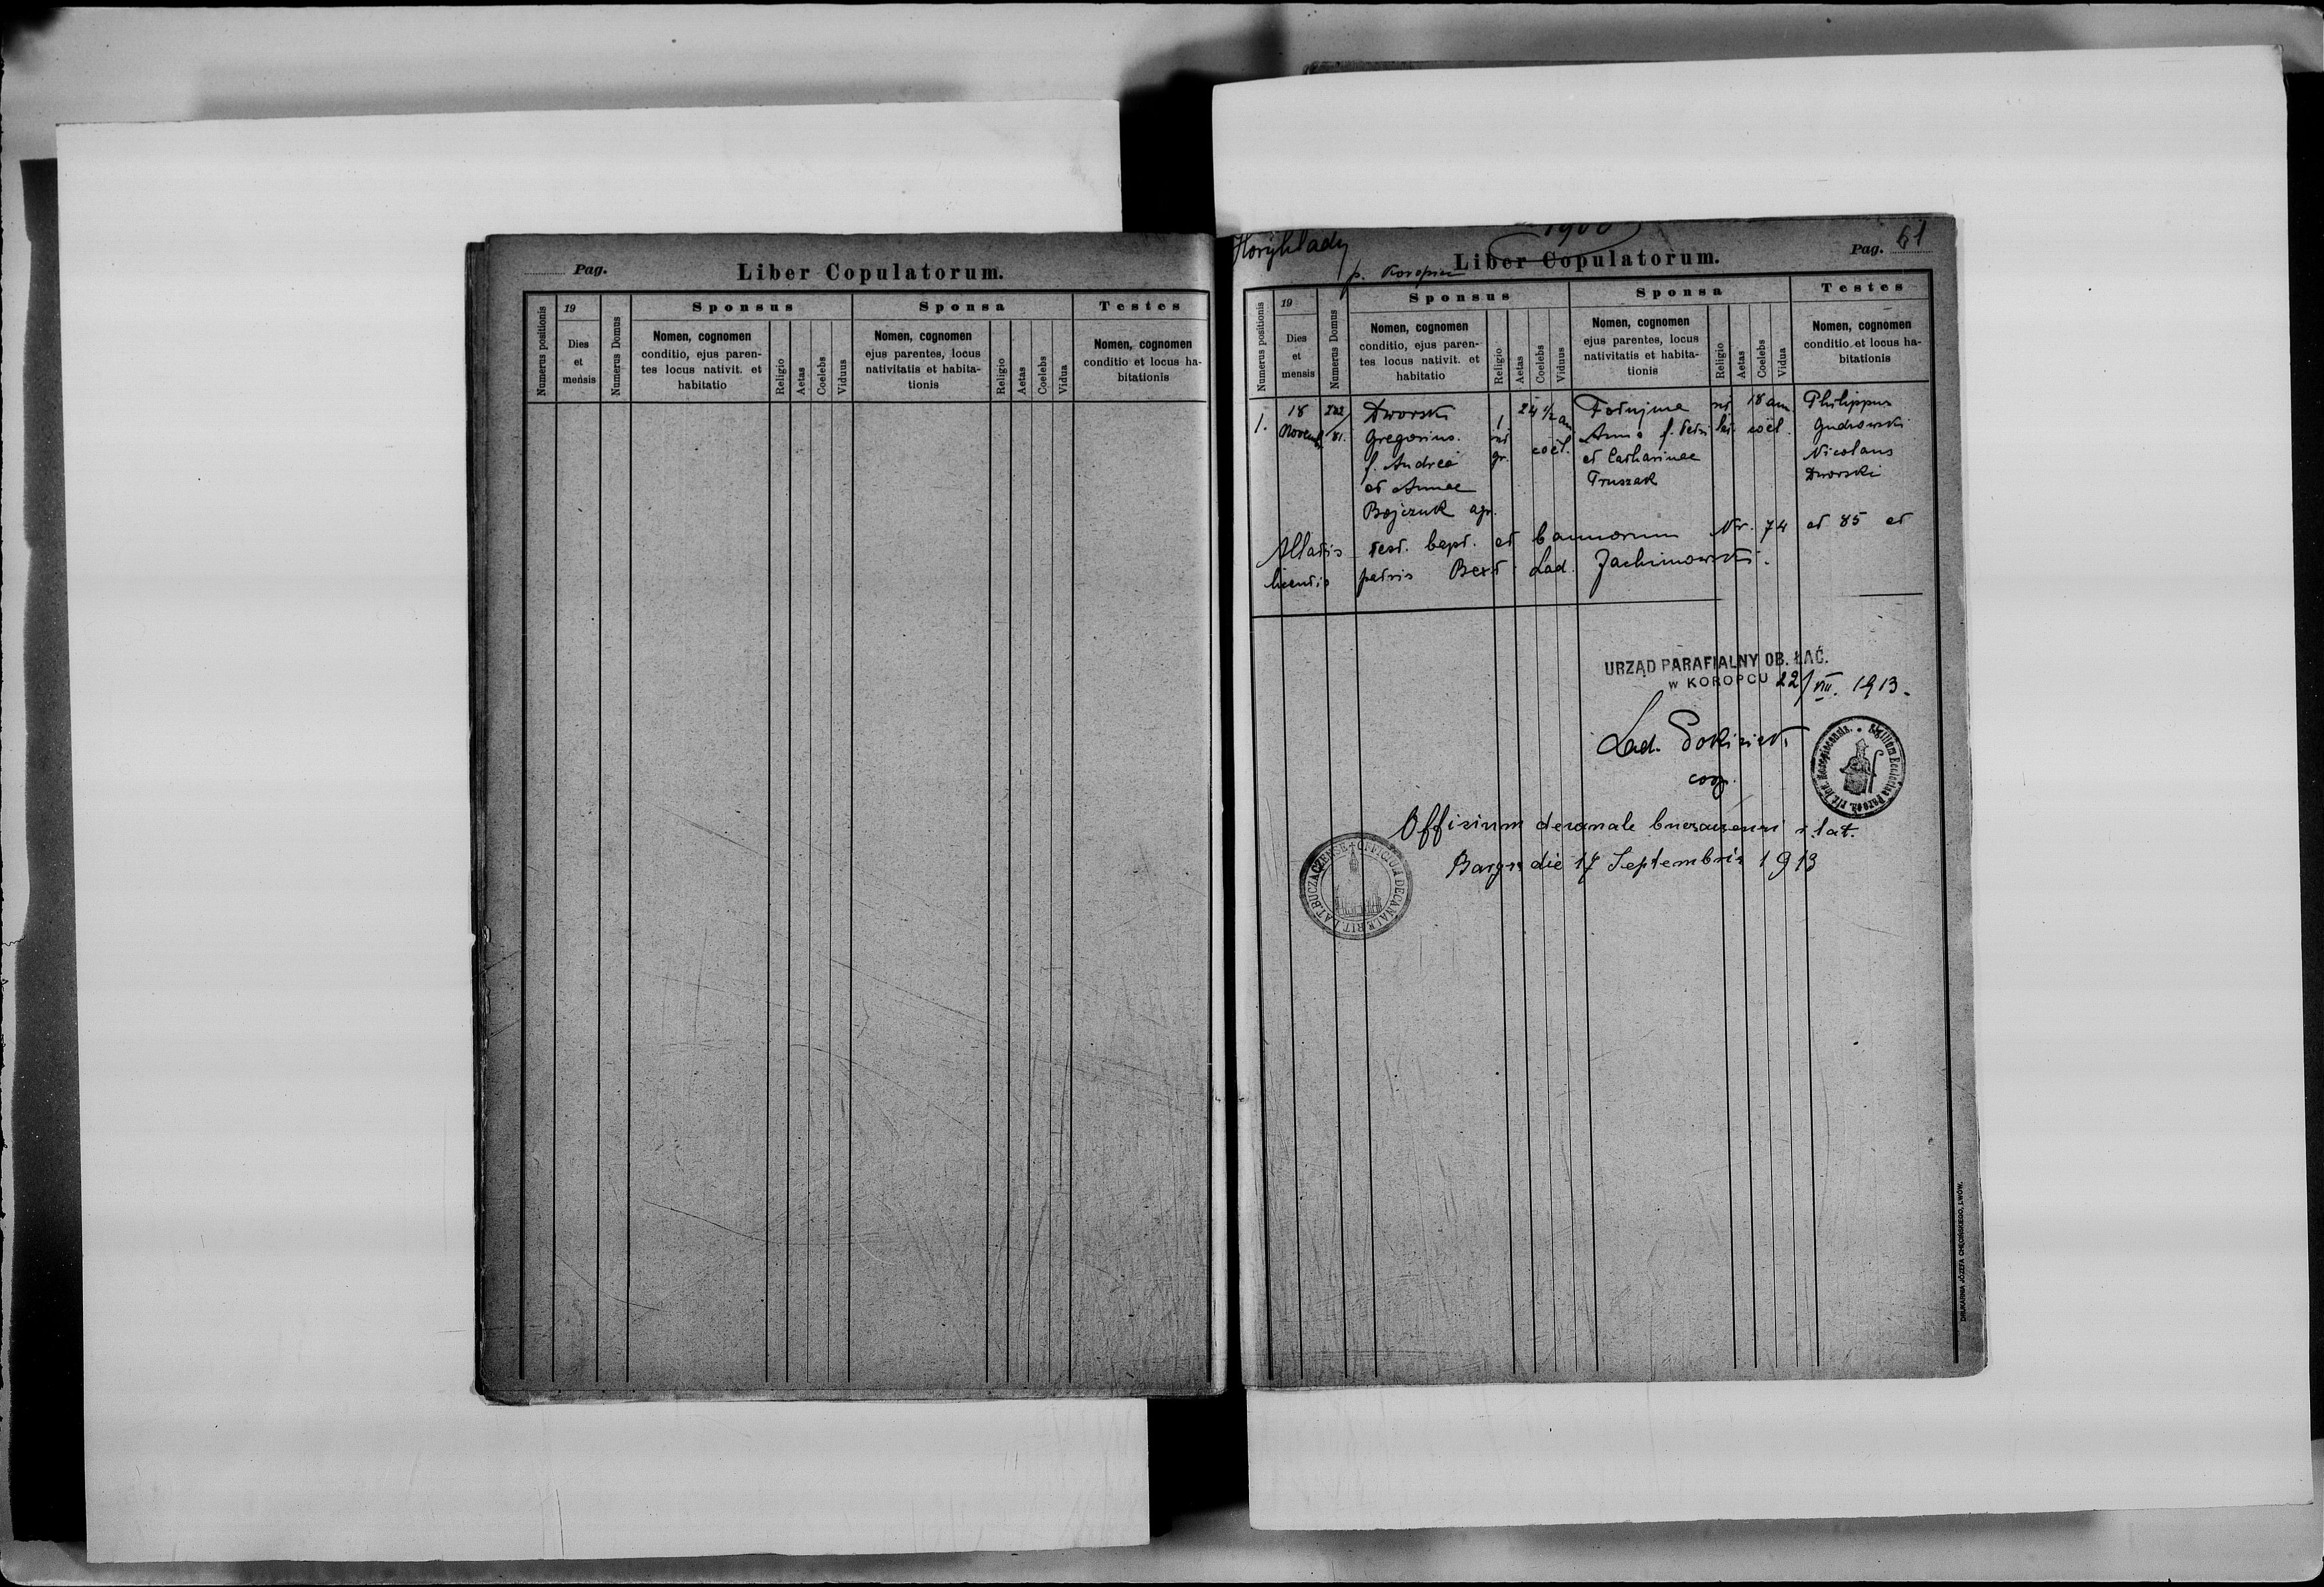 Pag.
Liber Copulatorum.
Numerus positionis
19
Dies
et
mensis
Numerus Domus
Sponsus
Nomen, cognomen
conditio, ejus paren-
tes locus nativit. et
habitatio
Religio
Aetas
Coelebs
Viduus
Sponsa
Nomen, cognomen
ejus parentes, locus
nativitatis et habita-
tionis
Religio
Aetas
Coelebs
Vidua
Testes
Nomen, cognomen
conditio et locus ha-
bitationis
Horyhlady
p. Koropiec
Liber Copulatorum.
Pag. 61
Numerus positionis
19
Dies
et
mensis
Numerus Domus
Sponsus
Nomen, cognomen
conditio, ejus paren-
tes locus nativit. et
habitatio
Religio
Aetas
Coelebs
Viduus
Sponsa
Nomen, cognomen
ejus parentes, locus
nativitatis et habita-
tionis
Religio
Aetas
Coelebs
Vidua
Testes
Nomen, cognomen
conditio et locus ha-
bitationis
1.
18
Novemb
202/
81.
Dworski
Gregorius
f. Andreä
et Annae
Bojczuk agr.
rit
gr.
24 1/2 an
coël.
Anna f. Petri
et Catharinae
Truszak
rit
lat.
18 ann.
coël.
Philippus
Gudrowski
Nicolaus
Dworski
Allatis test. bapt. et bannorum Nr. 74 et 85 et
licentia patris Lad. Jachimowski.
URZĄD PARAFIALNY OB. ŁAĆ.
W KOROPCU 22/VIII. 1913.
Lad.
coop.
Sigillum Ecclesiae Paroch. rit. lat. Koropiecensis.
Officium decanale buczaczensi r. lat.
die 17 Septembris 1913
OFFICIUM DECANALE RIT. LAT. BUCZACZENSE
DRUKARNIA JÓZEFA CHĘCIŃSKIEGO, LWÓW.